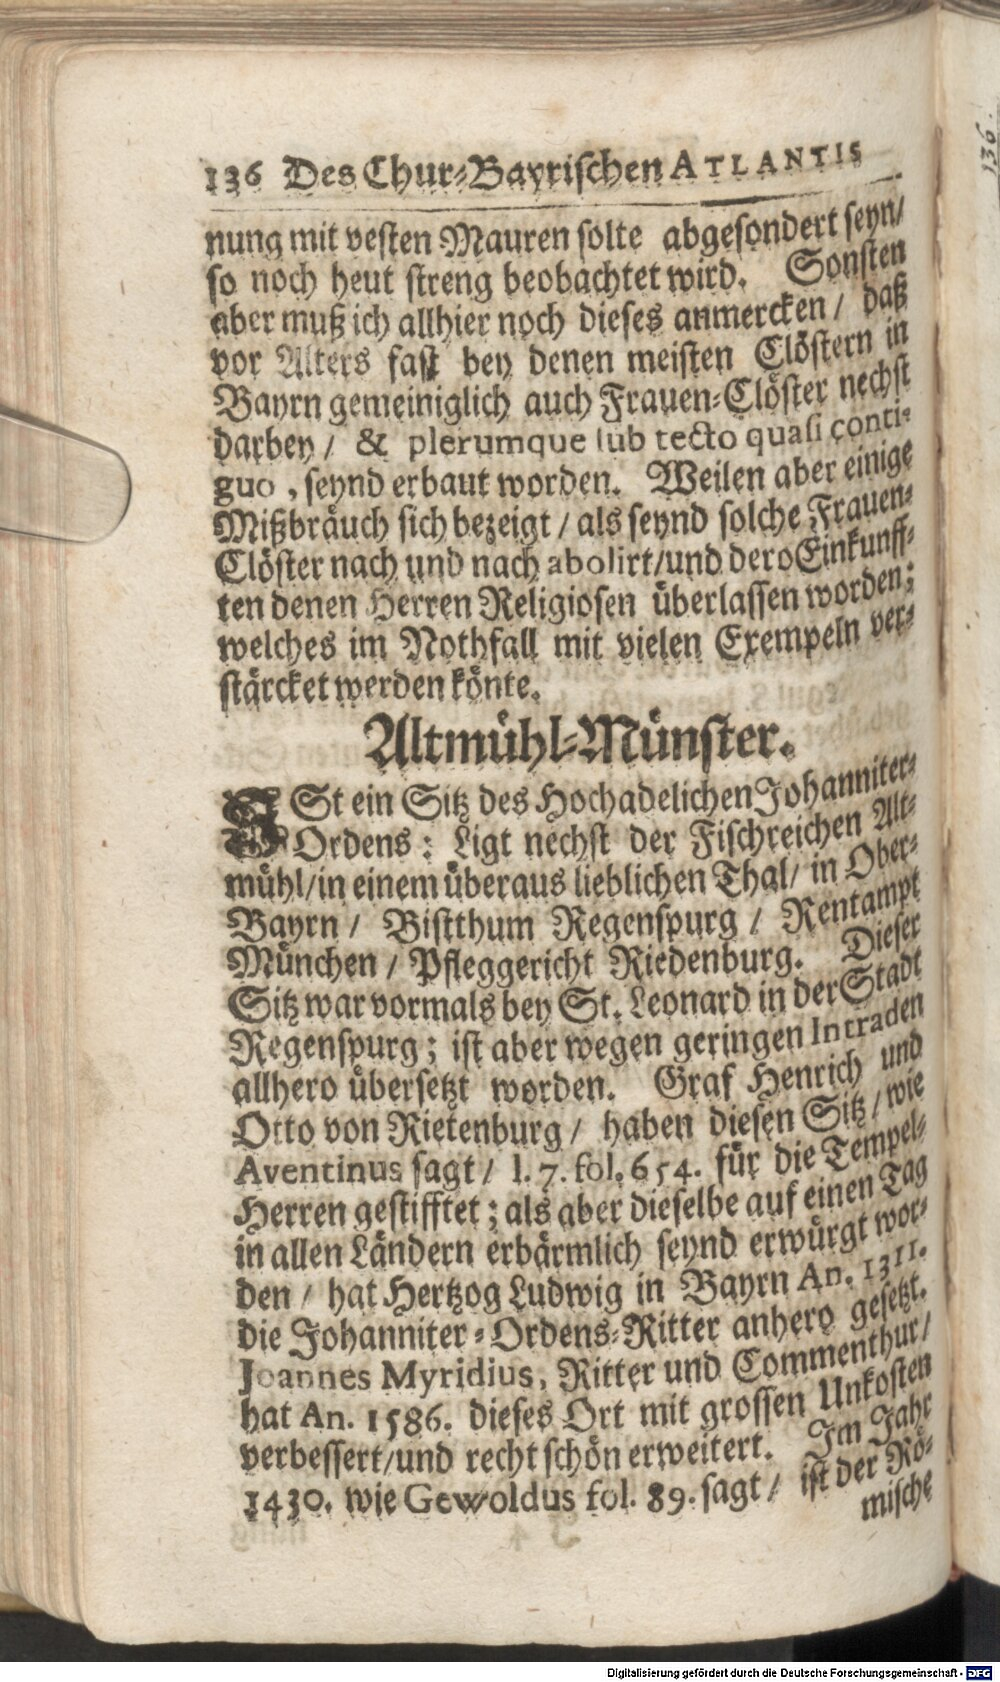 136 Des Chur-Bayrischen ATLANTIS
nung mit vesten Mauren solte abgesondert seyn/
so noch heut streng beobachtet wird. Sonsten
aber muß ich allhier noch dieses anmercken / daß
vor Alters fast bey denen meisten Clöstern in
Bayrn gemeiniglich auch Frauen-Clöster nechst
darbey / & plerumque sub tecto quasi conti-
guo , seynd erbaut worden. Weilen aber einige
Mißbräuch sich bezeigt / als seynd solche Frauen-
Clöster nach und nach abolirt/und dero Einkunff-
ten denen Herren Religiosen überlassen worden;
welches im Nothfall mit vielen Exempeln ver-
stärcket werden könte.
Altmühl-Münster.
ISt ein Sitz des Hochadelichen Johanniter-
Ordens: Ligt nechst der Fischreichen Alt-
mühl/in einem überaus lieblichen Thal/ in Ober-
Bayrn / Bistthum Regenspurg / Rentampt
München / Pfleggericht Riedenburg. Dieser
Sitz war vormals bey St. Leonard in der Stadt
Regenspurg; ist aber wegen geringen Intraden
allhero übersetzt worden. Graf Henrich und
Otto von Rietenburg / haben diesen Sitz / wie
Aventinus sagt / l. 7. fol. 654. für die Tempel-
Herren gestifftet; als aber dieselbe auf einen Tag
in allen Ländern erbärmlich seynd erwürgt wor-
den / hat Hertzog Ludwig in Bayrn An. 1311.
die Johanniter-Ordens-Ritter anhero gesetzt.
Joannes Myridius, Ritter und Commenthur/
hat An. 1586. dieses Ort mit grossen Unkosten
verbessert/und recht schön erweitert. Im Jahr
1430. wie Gewoldus fol. 89. sagt / ist der Rö-
mische
136.
Digitalisierung gefördert durch die Deutsche Forschungsgemeinschaft - DFG